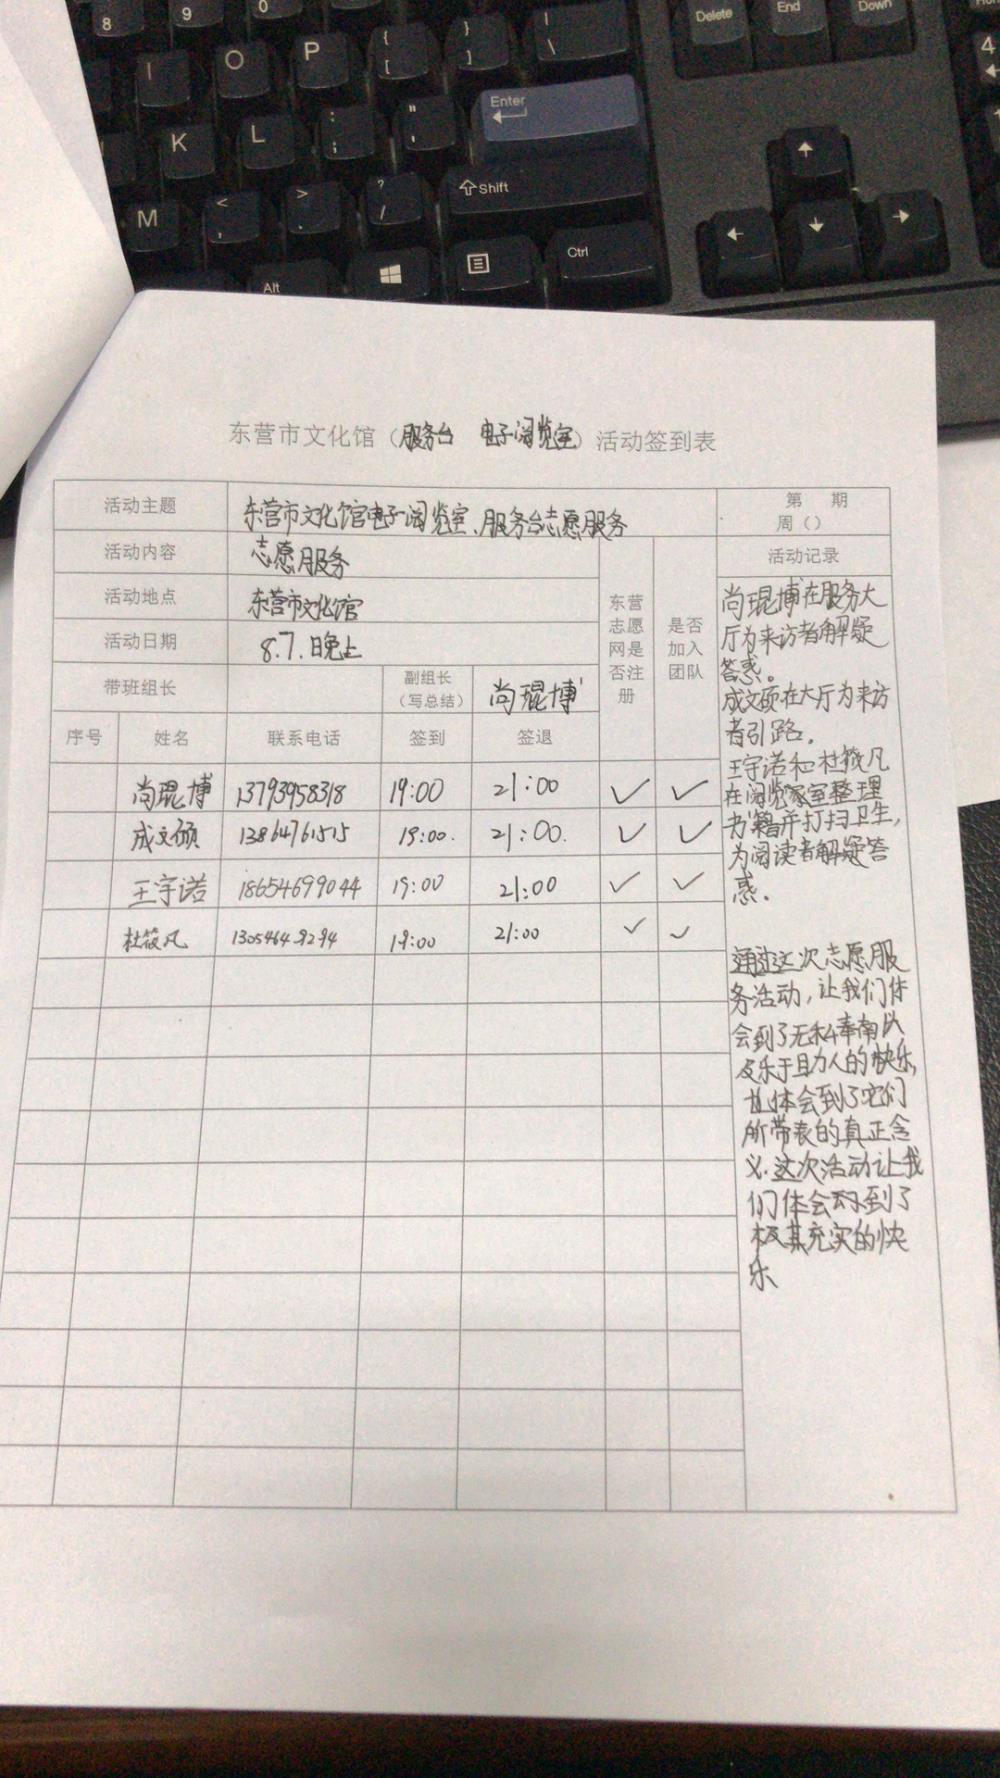 8
9
0
I
O
P
{
[
}
]
|
\
Delete
End
Down
K
L
:
;
"
'
Enter
4
M
<
,
>
.
?
/
Shift
Alt
Ctrl
东营市文化馆（服务台 电子阅览室）活动签到表
活动主题 东营市文化馆电子阅览室、服务台志愿服务 第 期
周（）
活动内容 志愿服务
活动地点 东营市文化馆
活动日期 8.7.日晚上
东营
志愿
网是
否注
册
是否
加入
团队
带班组长 副组长
（写总结） 尚琨博
序号 姓名 联系电话 签到 签退
尚琨博 13793958318 19:00 21:00 ✓ ✓
成文硕 13864761515 19:00. 21:00. ✓ ✓
王宇诺 18654699044 19:00 21:00 ✓ ✓
杜筱凡 13054649294 19:00 21:00 ✓ ✓
活动记录
尚琨博在服务大
厅为来访者解疑
答惑。
成文硕在大厅为来访
者引路。
王宇诺和杜筱凡
在阅览室整理
书籍并打扫卫生，
为阅读者解疑答
惑.
通过这次志愿服
务活动，让我们体
会到了无私奉南以
及乐于助人的快乐,
也体会到了它们
所带表的真正含
义.这次活动让我
们体会到了
极其充实的快
乐